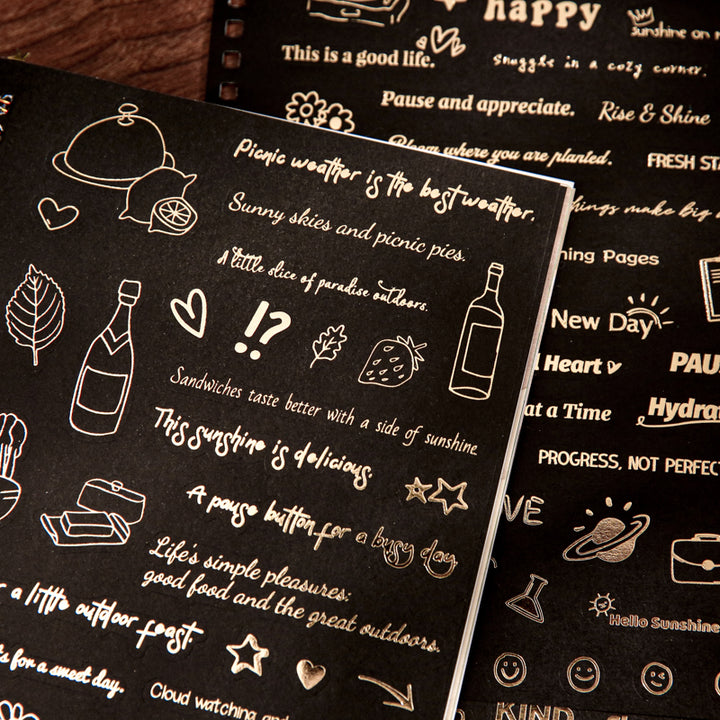 happy
Sunshine on
This is a good life.
Snuggle in a cozy corner.
Pause and appreciate.
Rise & Shine
Bloom where you are planted.
FRESH
things make big
Pages
New Day
Heart
at a Time
PROGRESS, NOT
Hello Sunshine
KIND
Picnic weather is the best weather.
Sunny skies and picnic pies.
A little slice of paradise outdoors.
!?
Sandwiches taste better with a side of sunshine.
This sunshine is delicious.
A pause button for a busy day
Life's simple pleasures:
good food and the great outdoors.
a little outdoor feast.
for a sweet day.
Cloud watching and